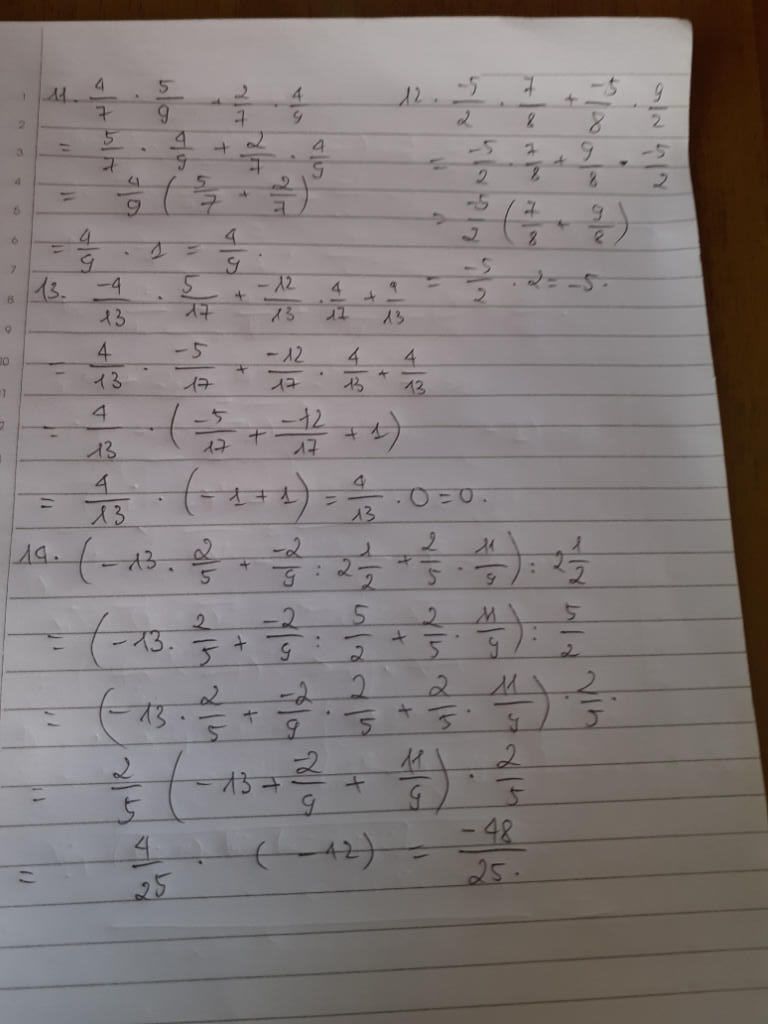 11. 4/7 · 5/9 + 2/7 · 4/9
= 5/7 · 4/9 + 2/7 · 4/9
= 4/9 (5/7 + 2/7)
= 4/9 · 1 = 4/9.
12. -5/2 · 7/8 + -5/8 · 9/2
= -5/2 · 7/8 + 9/8 · -5/2
= -5/2 (7/8 + 9/8)
= -5/2 · 2 = -5.
13. -4/13 · 5/17 + -12/13 · 4/17 + 4/13
= 4/13 · -5/17 + -12/17 · 4/13 + 4/13
= 4/13 · (-5/17 + -12/17 + 1)
= 4/13 · (-1 + 1) = 4/13 · 0 = 0.
14. (-13 · 2/5 + -2/9 : 2 1/2 + 2/5 · 11/9) : 2 1/2
= (-13 · 2/5 + -2/9 : 5/2 + 2/5 · 11/9) : 5/2
= (-13 · 2/5 + -2/9 · 2/5 + 2/5 · 11/9) · 2/5.
= 2/5 (-13 + -2/9 + 11/9) · 2/5
= 4/25 · (-12) = -48/25.